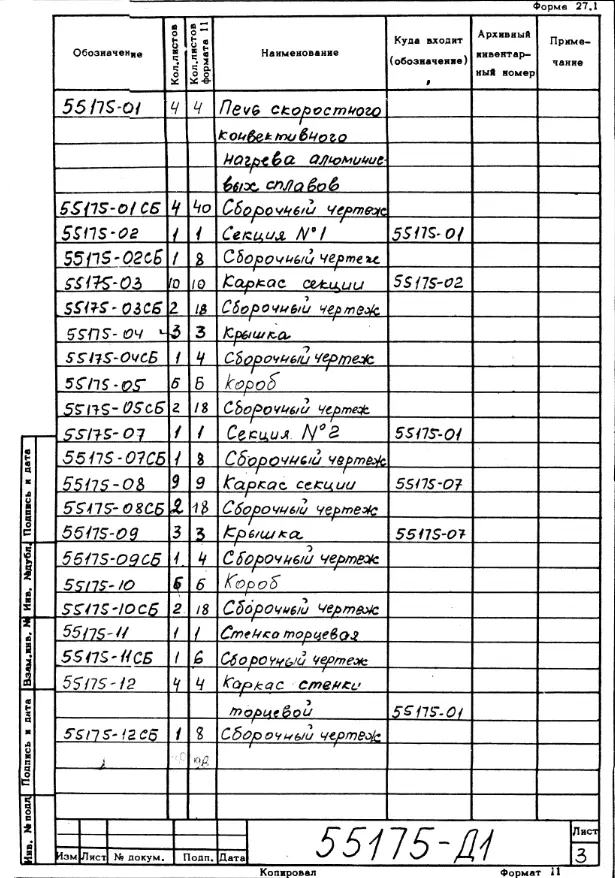 Форма 27.1
Обозначение Кол.листов Кол.листов формата 11 Наименование Куда входит (обозначение) Архивный инвентарный номер Примечание
55175-01 4 4 Печь скоростного
конвективного
нагрева алюминие-
вых сплавов
55175-01СБ 4 40 Сборочный чертеж
55175-02 1 1 Секция №1 55175-01
55175-02СБ 1 8 Сборочный чертеж
55175-03 10 10 Каркас секции 55175-02
55175-03СБ 2 18 Сборочный чертеж
55175-04 3 3 Крышка
55175-04СБ 1 4 Сборочный чертеж
55175-05 6 6 Короб
55175-05СБ 2 18 Сборочный чертеж
55175-07 1 1 Секция №2 55175-01
55175-07СБ 1 8 Сборочный чертеж
55175-08 9 9 Каркас секции 55175-07
55175-08СБ 2 18 Сборочный чертеж
55175-09 3 3 Крышка 55175-07
55175-09СБ 1 4 Сборочный чертеж
55175-10 6 6 Короб
55175-10СБ 2 18 Сборочный чертеж
55175-11 1 1 Стенка торцевая
55175-11СБ 1 6 Сборочный чертеж
55175-12 4 4 Каркас стенки
торцевой 55175-01
55175-12СБ 1 8 Сборочный чертеж
Инв. № подл. Подпись и дата Взам.инв. № Инв. №дубл. Подпись и дата
55175-Д1
Лист
3
Изм Лист № докум. Подп. Дата
Копировал Формат 11